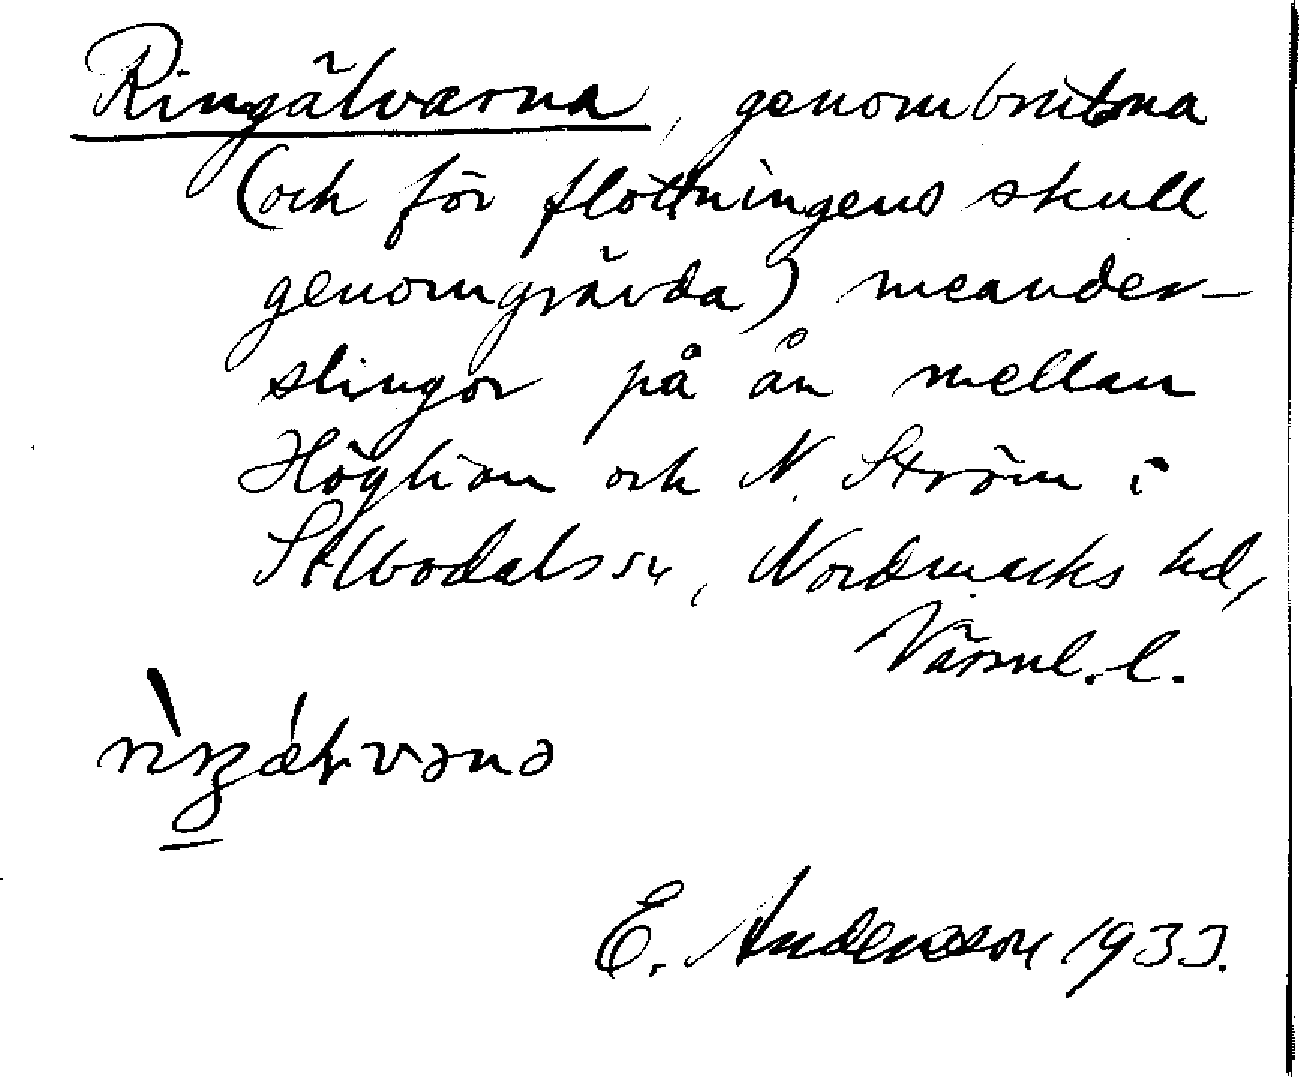 Ringälvarna, genombrutna
(och för flottningens skull
genomgrävda) meander-
slingor på ån mellan
Höglian och N. Ström i
Sillbodals sn, Nordmarks hd,
Värml. l.
E. Andersson 1933.